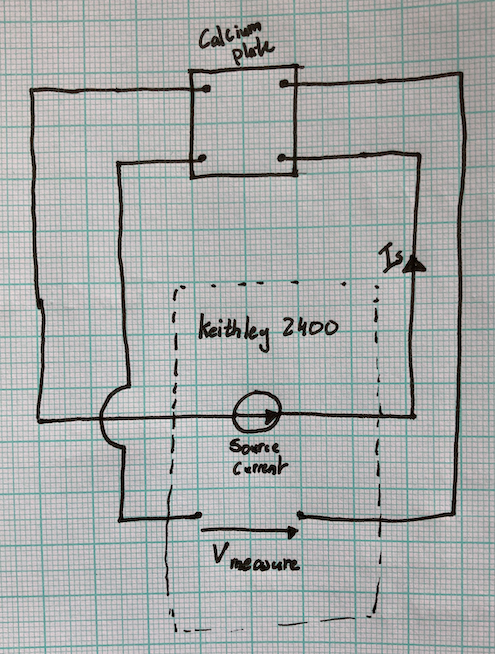 Calcium
plate
Is
Keithley 2400
Source
Current
Vmeasure